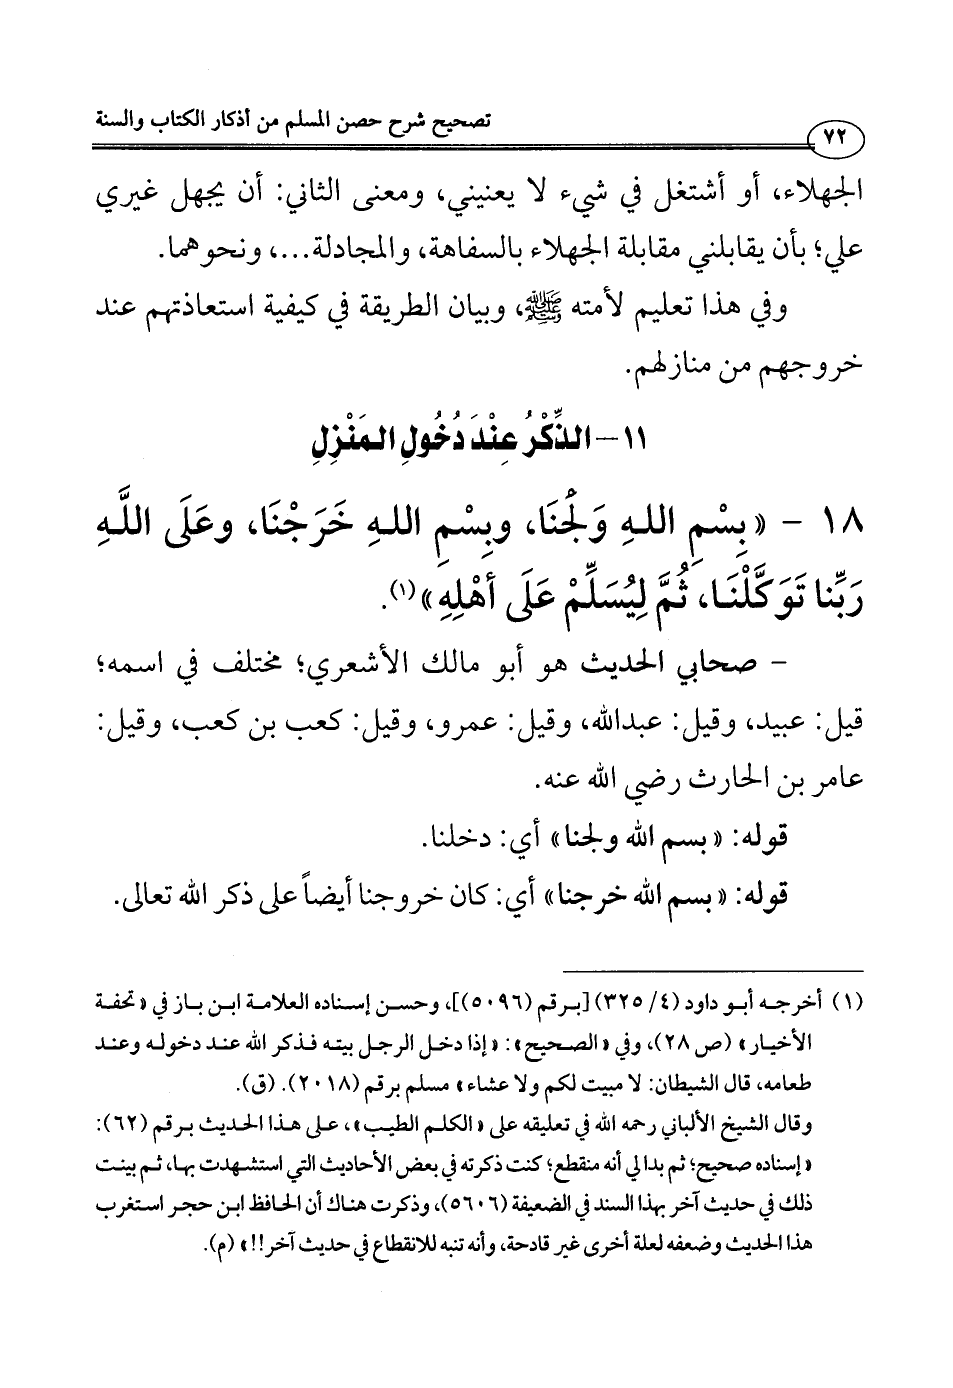 تصحيح شرح حصن المسلم من أذكار الكتاب والسنة
٧٢
الجهلاء، أو أشتغل في شيء لا يعنيني، ومعنى الثاني: أن يجهل غيري
علي؛ بأن يقابلني مقابلة الجهلاء بالسفاهة، والمجادلة...، ونحوهما.
وفي هذا تعليم لأمته ﷺ، وبيان الطريقة في كيفية استعاذتهم عند
خروجهم من منازلهم.
١١- الذِّكْرُ عِنْدَ دُخُولِ المَنْزِلِ
١٨ - «بِسْمِ اللهِ وَلَجْنَا، وبِسْمِ اللهِ خَرَجْنَا، وعَلَى اللَّهِ
رَبِّنا تَوَكَّلْنَا، ثُمَّ لِيُسَلِّمْ عَلَى أهْلِهِ»(١).
- صحابي الحديث هو أبو مالك الأشعري؛ مختلف في اسمه؛
قيل: عبيد، وقيل: عبدالله، وقيل: عمرو، وقيل: كعب بن كعب، وقيل:
عامر بن الحارث رضي الله عنه.
قوله: «بسم الله ولجنا» أي: دخلنا.
قوله: «بسم الله خرجنا» أي: كان خروجنا أيضاً على ذكر الله تعالى.
(١) أخرجه أبو داود (٤/ ٣٢٥) [برقم (٥٠٩٦)]، وحسن إسناده العلامة ابن باز في «تحفة
الأخيار» (ص ٢٨)، وفي «الصحيح»: «إذا دخل الرجل بيته فذكر الله عند دخوله وعند
طعامه، قال الشيطان: لا مبيت لكم ولا عشاء» مسلم برقم (٢٠١٨). (ق).
وقال الشيخ الألباني رحمه الله في تعليقه على «الكلم الطيب»، على هذا الحديث برقم (٦٢):
«إسناده صحيح؛ ثم بدا لي أنه منقطع؛ كنت ذكرته في بعض الأحاديث التي استشهدت بها، ثم بينت
ذلك في حديث آخر بهذا السند في الضعيفة (٥٦٠٦)، وذكرت هناك أن الحافظ ابن حجر استغرب
هذا الحديث وضعفه لعلة أخرى غير قادحة، وأنه تنبه للانقطاع في حديث آخر!!» (م).